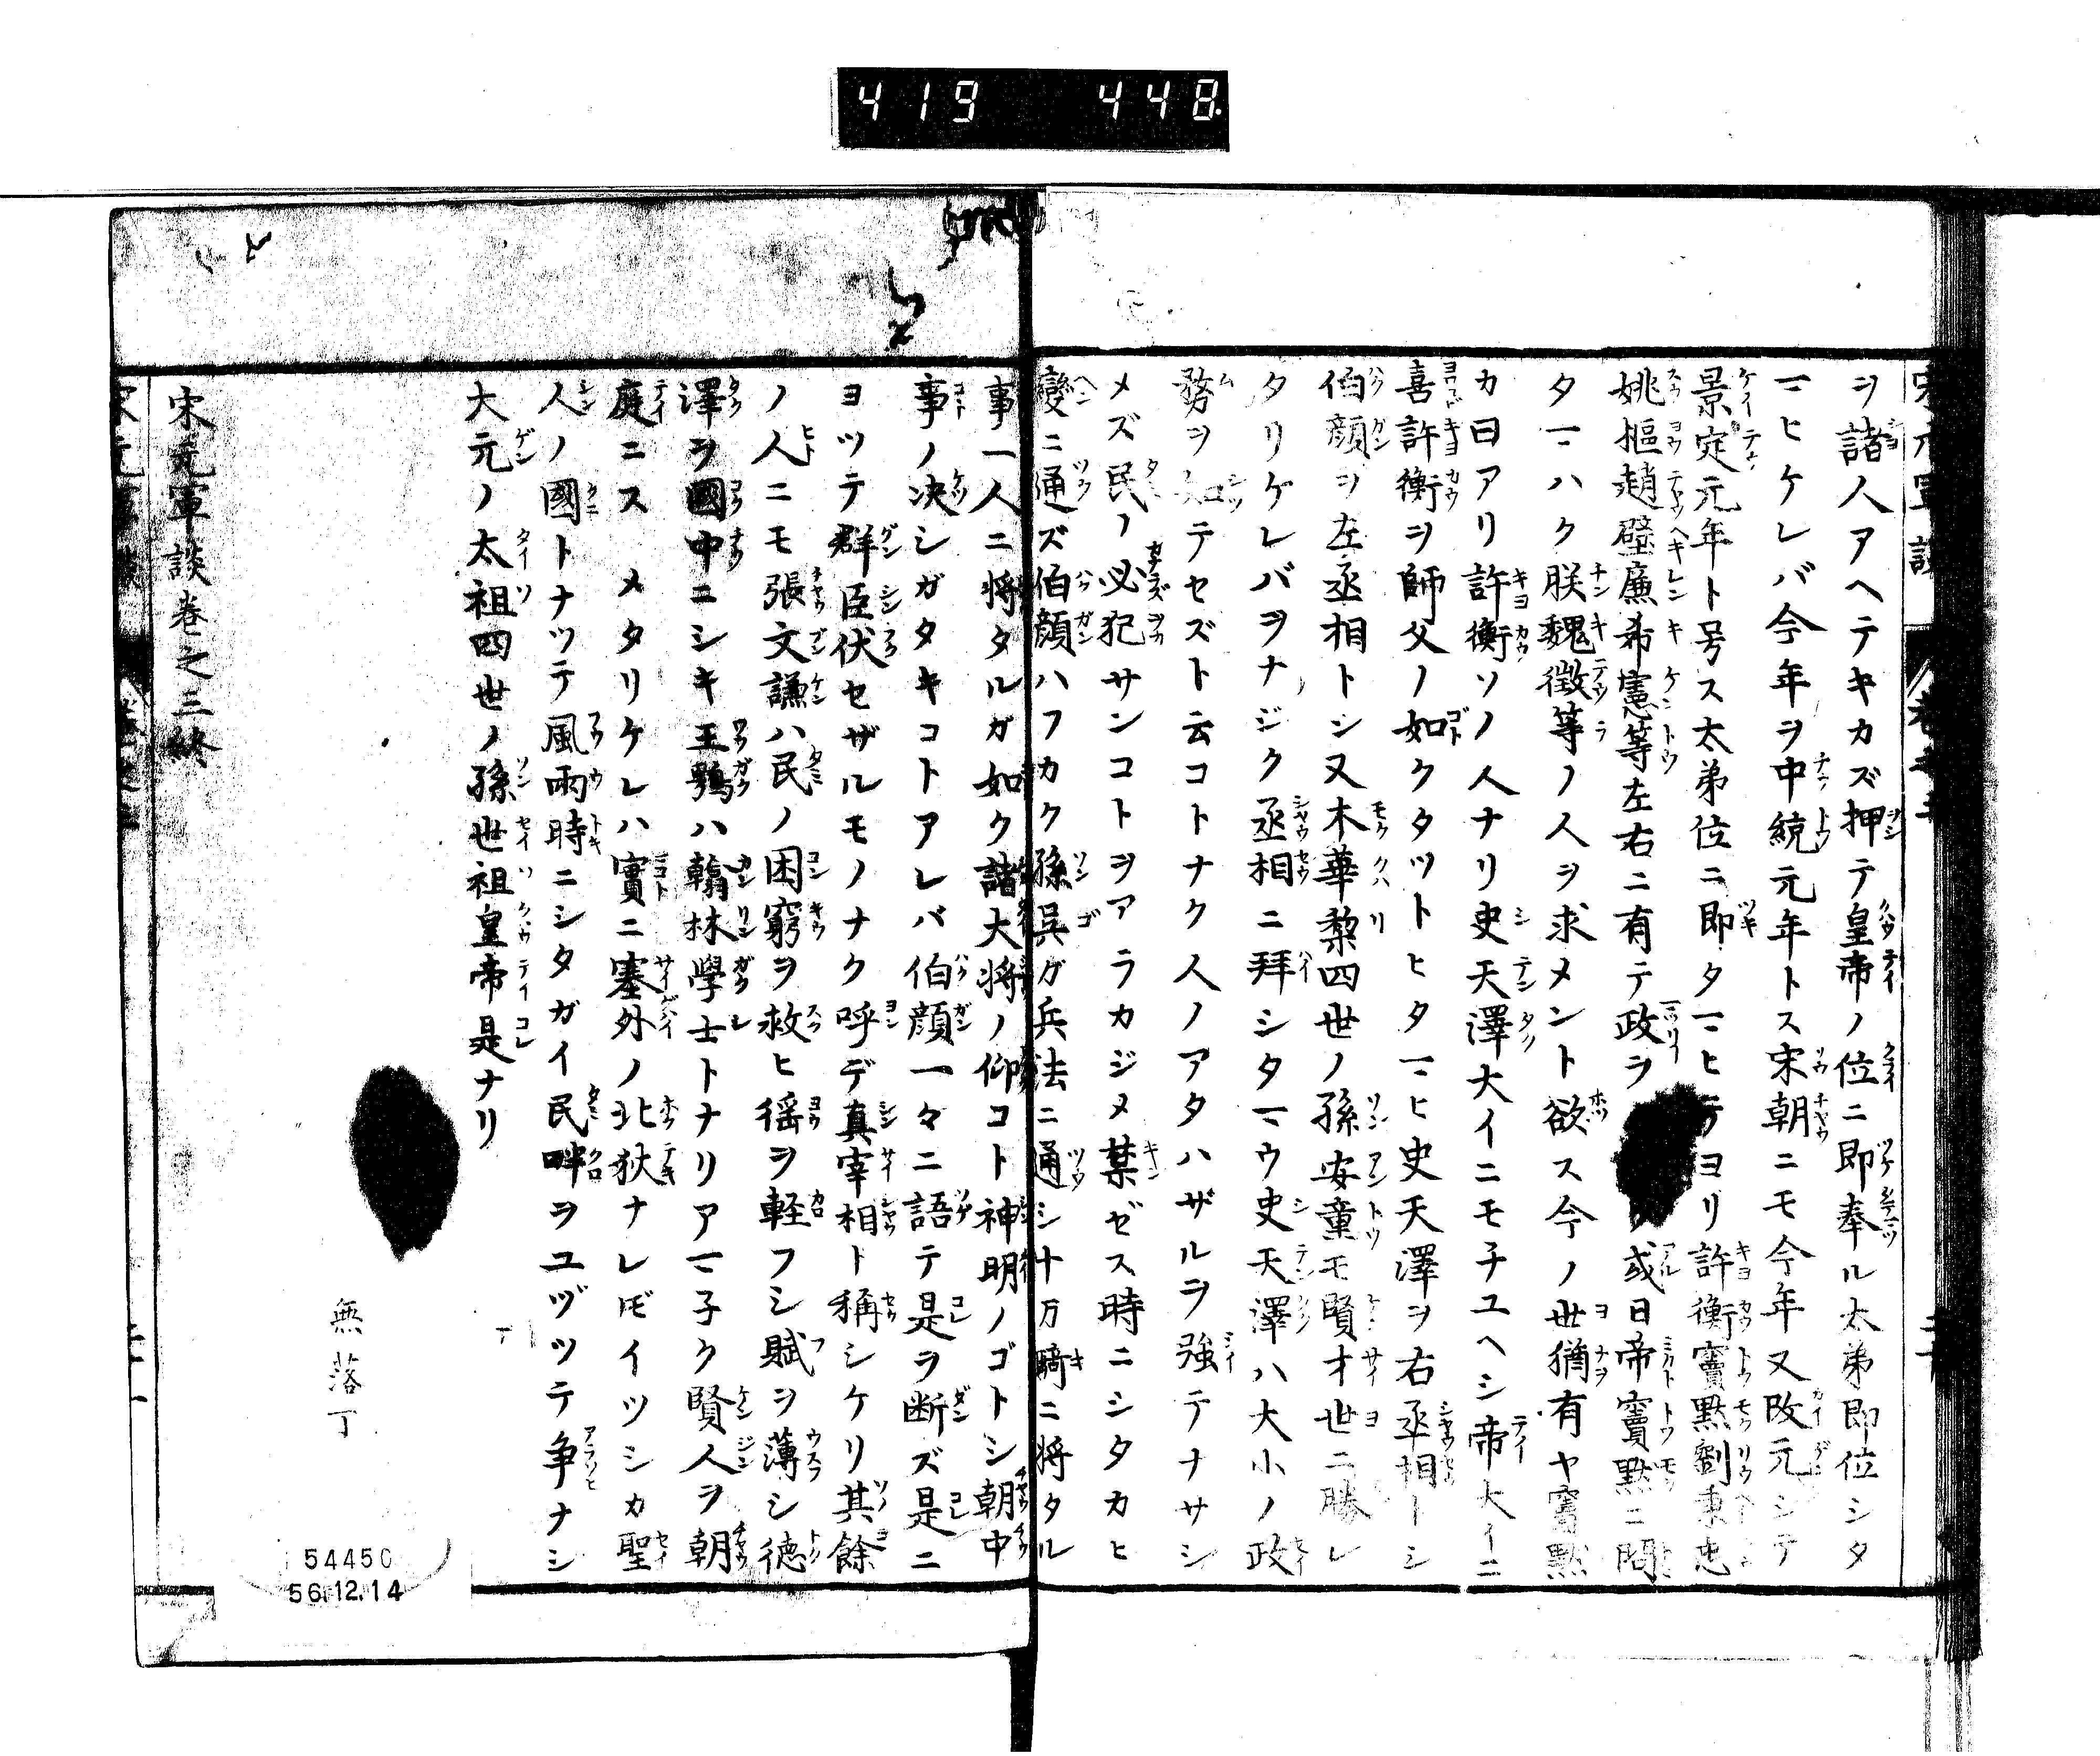 419 448
ヲ諸人アヘテキカズ押テ皇帝ノ位ニ即奉ル太弟即位シタ
マヒケレバ今年ヲ中統元年トス宋朝ニモ今年又改元シテ
景定元年ト号ス太弟位ニ即タマヒテヨリ許衡竇黙劉秉忠
姚樞趙壁廉希憲等左右ニ有テ政ヲ 或日帝竇黙ニ問
タマハク朕魏徴等ノ人ヲ求メント欲ス今ノ世猶有ヤ竇黙
カ曰アリ許衡ソノ人ナリ史天澤大イニモチユヘシ帝大イニ
喜許衡ヲ師父ノ如クタットヒタマヒ史天澤ヲ右丞相トシ
伯顔ヲ左丞相トシ又木華黎四世ノ孫安童モ賢才世ニ勝レ
タリケレバヲナジク丞相ニ拜シタマウ史天澤ハ大小ノ政
務ヲ知テセズト云コトナク人ノアタハザルヲ強テナサシ
メズ民ノ必犯サンコトヲアラカジメ禁ゼス時ニシタカヒ
變ニ通ズ伯顔ハフカク孫呉ガ兵法ニ通シ十万騎ニ将タル
事一人ニ将タルガ如ク諸大将ノ仰コト神明ノゴトシ朝中
事ノ决シガタキコトアレバ伯顔一々ニ語テ是ヲ断ズ是ニ
ヨツテ群臣伏セザルモノナク呼デ真宰相ト稱シケリ其餘
ノ人ニモ張文謙ハ民ノ困窮ヲ救ヒ徭ヲ軽フシ賦ヲ薄シ徳
澤ヲ國中ニシキ王鶚ハ翰林學士トナリアマネク賢人ヲ朝
庭ニスヽメタリケレハ實ニ塞外ノ北狄ナレドモイツシカ聖
人ノ國トナツテ風雨時ニシタガイ民畔ヲユヅツテ争ナシ
大元ノ太祖四世ノ孫世祖皇帝是ナリ
無落丁
宋元軍談卷之三終
54450
56.12.14